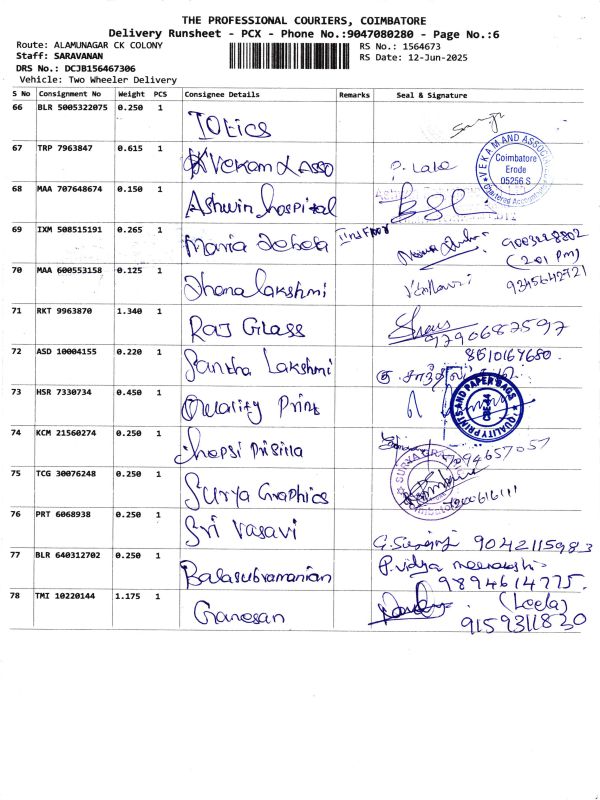 THE PROFESSIONAL COURIERS, COIMBATORE
Delivery Runsheet - PCX - Phone No.:9047080280 - Page No.:6
Route: ALAMUNAGAR CK COLONY
Staff: SARAVANAN
DRS No.: DCJB156467306
Vehicle: Two Wheeler Delivery
RS No.: 1564673
RS Date: 12-Jun-2025
S No Consignment No Weight PCS Consignee Details Remarks Seal & Signature
66 BLR 5005322075 0.250 1
67 TRP 7963847 0.615 1 Vekam & Asso
VEKAM AND ASSOCI
Coimbatore
Erode
05256 S
Chartered Accountants
68 MAA 707648674 0.150 1 Ashwin hospital
69 IXM 508515191 0.265 1 Maria IInd Floor 9003228802
(2.01 Pm)
70 MAA 600553158 0.125 1 Dhanalakshmi 9345642721
71 RKT 9963870 1.340 1 Raj Glass 9790687597
72 ASD 10004155 0.220 1 Santha Lakshmi 8610167680
73 HSR 7330734 0.450 1 Quality Print
QUALITY PRINTS AND PAPER BAGS
CBE-44
74 KCM 21560274 0.250 1 7094657057
75 TCG 30076248 0.250 1 Surya Graphics
SURYA GRAPHICS
Coimbatore
76 PRT 6068938 0.250 1 Sri Vasavi 9042115983
77 BLR 640312702 0.250 1 Balasubramanian P. Vidya
9894614775.
78 TMI 10220144 1.175 1 Ganesan (Leela)
9159311830